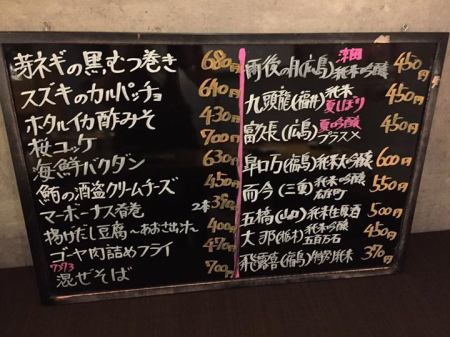 芽ネギの黒むつ巻き 680円
スズキのカルパッチョ 640円
ホタルイカ酢みそ 430円
桜コッケ 700円
海鮮バクダン 630円
鮪の酒盗クリームチーズ 450円
マーボーナス春巻 2本
揚げだし豆腐〜あおさ出汁〜 400円
ゴーヤ肉詰めフライ 470円
混ぜそば 700円
雨後の月(広島)純米吟醸 450円
九頭龍(福井)純米 夏しぼり 450円
富久長(広島)夏吟醸 プラスメ 450円
(福島)純米大吟醸 600円
而今(三重)純米吟醸 550円
五橋(山口)純米生原酒 500円
大那(栃木)純米吟醸 五百万石 450円
飛露喜(福島)特別純米 370円